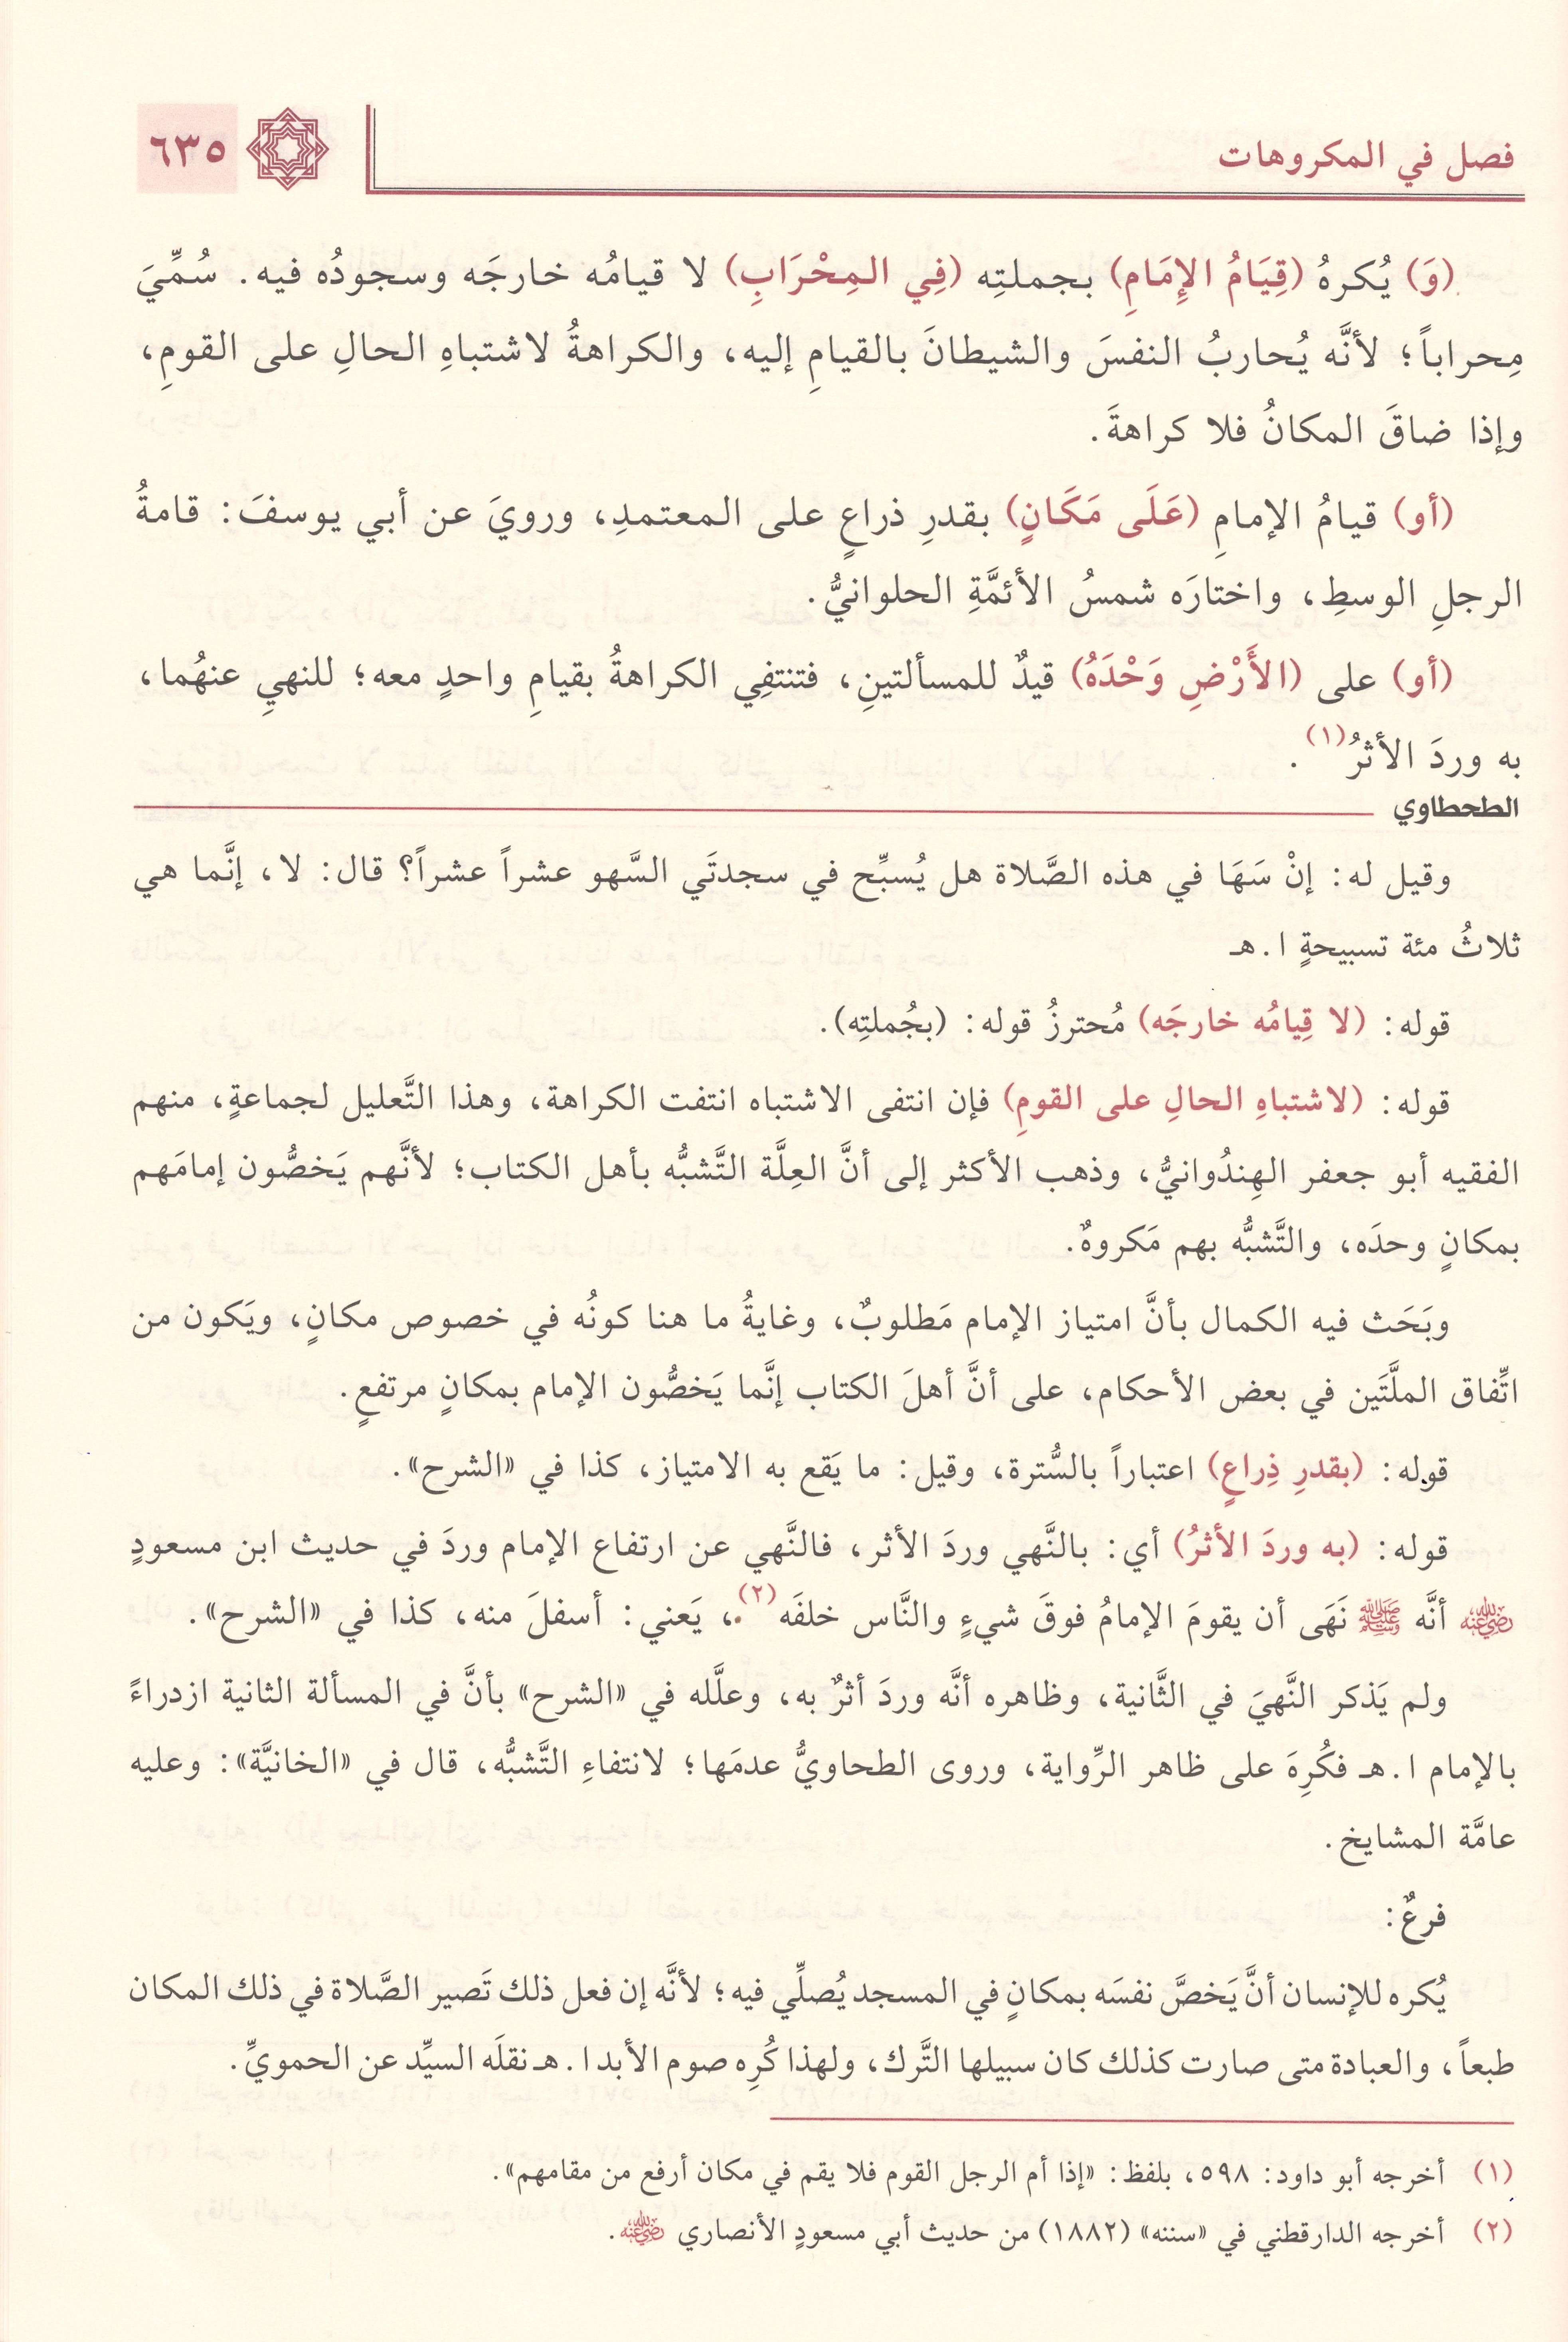 فصل في المكروهات
٦٣٥
(وَ) يُكرهُ (قِيَامُ الإِمَامِ) بجملتِه (فِي المِحْرَابِ) لا قيامُه خارجَه وسجودُه فيه. سُمِّيَ
مِحراباً؛ لأنَّه يُحاربُ النفسَ والشيطانَ بالقيامِ إليه، والكراهةُ لاشتباهِ الحالِ على القومِ،
وإذا ضاقَ المكانُ فلا كراهةَ.
(أو) قيامُ الإمامِ (عَلَى مَكَانٍ) بقدرِ ذراعٍ على المعتمدِ، ورويَ عن أبي يوسفَ: قامةُ
الرجلِ الوسطِ، واختارَه شمسُ الأئمَّةِ الحلوانيُّ.
(أو) على (الأَرْضِ وَحْدَهُ) قيدٌ للمسألتينِ، فتنتفِي الكراهةُ بقيامِ واحدٍ معه؛ للنهيِ عنهُما،
به وردَ الأثرُ(١).
الطحطاوي
وقيل له: إنْ سَهَا في هذه الصَّلاة هل يُسبِّح في سجدتَي السَّهو عشراً عشراً؟ قال: لا، إنَّما هي
ثلاثُ مئة تسبيحةٍ ا.هـ
قوله: (لا قِيامُه خارجَه) مُحترزُ قوله: (بجُملتِه).
قوله: (لاشتباهِ الحالِ على القومِ) فإن انتفى الاشتباه انتفت الكراهة، وهذا التَّعليل لجماعةٍ، منهم
الفقيه أبو جعفر الهِندُوانيُّ، وذهب الأكثر إلى أنَّ العِلَّة التَّشبُّه بأهل الكتاب؛ لأنَّهم يَخصُّون إمامَهم
بمكانٍ وحدَه، والتَّشبُّه بهم مَكروهٌ.
وبَحَث فيه الكمال بأنَّ امتياز الإمام مَطلوبٌ، وغايةُ ما هنا كونُه في خصوص مكانٍ، ويَكون من
اتِّفاق الملَّتَين في بعض الأحكام، على أنَّ أهلَ الكتاب إنَّما يَخصُّون الإمام بمكانٍ مرتفعٍ.
قوله: (بقدرِ ذِراعٍ) اعتباراً بالسُّترة، وقيل: ما يَقع به الامتياز، كذا في «الشرح».
قوله: (به وردَ الأثرُ) أي: بالنَّهي وردَ الأثر، فالنَّهي عن ارتفاع الإمام وردَ في حديث ابن مسعودٍ
رضي الله عنه أنَّه ﷺ نَهَى أن يقومَ الإمامُ فوقَ شيءٍ والنَّاس خلفَه(٢).، يَعني: أسفلَ منه، كذا في «الشرح».
ولم يَذكر النَّهيَ في الثَّانية، وظاهره أنَّه وردَ أثرٌ به، وعلَّله في «الشرح» بأنَّ في المسألة الثانية ازدراءً
بالإمام ا.هـ فكُرِهَ على ظاهر الرِّواية، وروى الطحاويُّ عدمَها؛ لانتفاءِ التَّشبُّه، قال في «الخانيَّة»: وعليه
عامَّة المشايخ.
فرعٌ:
يُكره للإنسان أنَّ يَخصَّ نفسَه بمكانٍ في المسجد يُصلِّي فيه؛ لأنَّه إن فعل ذلك تَصير الصَّلاة في ذلك المكان
طبعاً، والعبادة متى صارت كذلك كان سبيلها التَّرك، ولهذا كُرِه صوم الأبد ا.هـ نقلَه السيِّد عن الحمويِّ.
(١) أخرجه أبو داود: ٥٩٨، بلفظ: «إذا أم الرجل القوم فلا يقم في مكان أرفع من مقامهم».
(٢) أخرجه الدارقطني في «سننه» (١٨٨٢) من حديث أبي مسعودٍ الأنصاري رضي الله عنه.